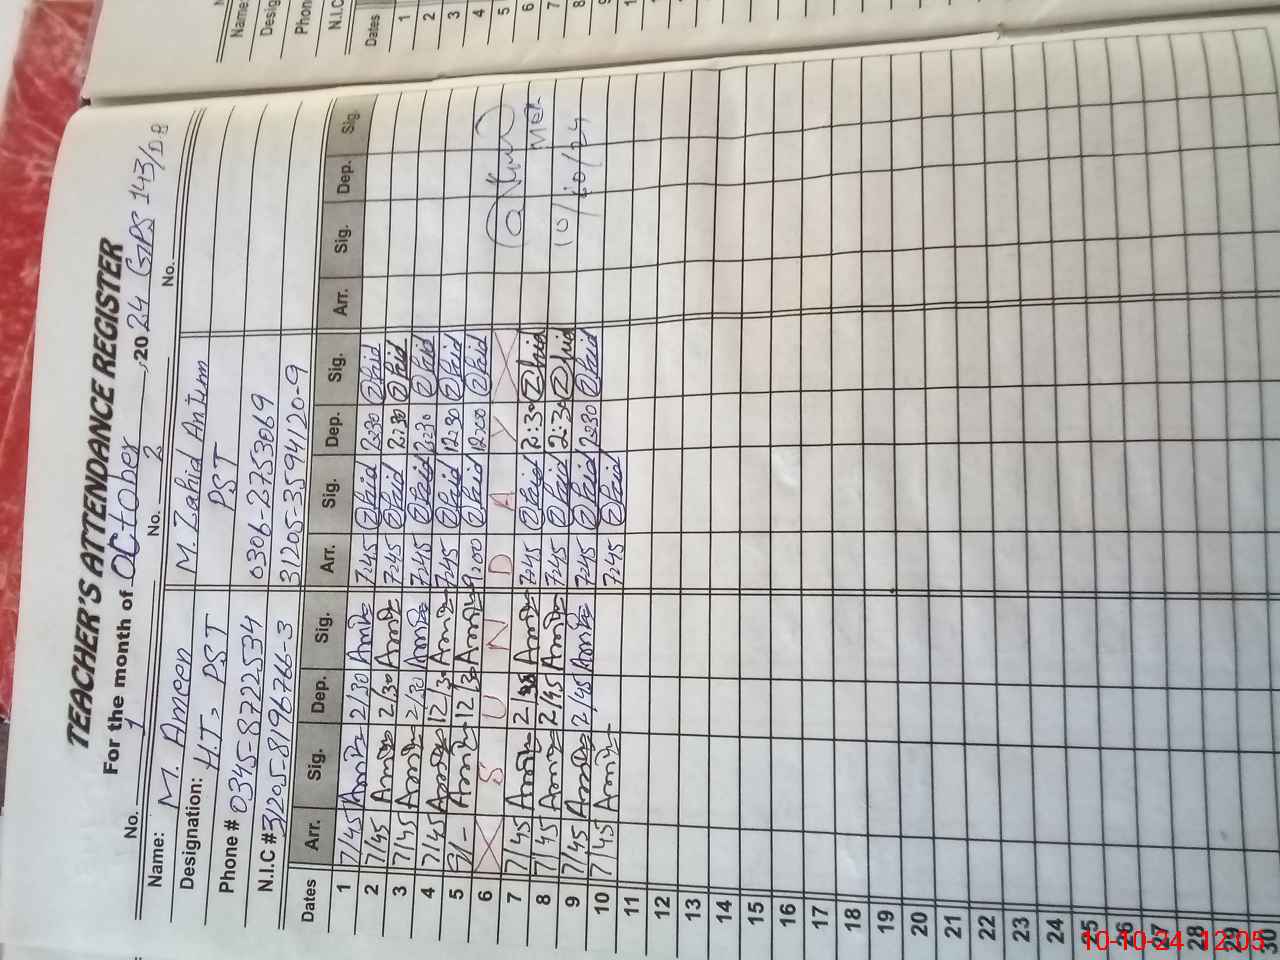 TEACHER'S ATTENDANCE REGISTER
For the month of October, 2024 GPS 143/D.B
No. 1 No. 2 No.
Name: M. Ameen M. Zahid Anjum
Designation: H.T, PST PST
Phone # 0345-8722534 0306-2753069
N.I.C # 31205-8196766-3 31205-3594120-9
Dates Arr. Sig. Dep. Sig. Arr. Sig. Dep. Sig. Arr. Sig. Dep. Sig.
1 7/45 Amin 2/30 Amin 7:45 Zahid 2:30 Zahid
2 7/45 Amin 2/30 Amin 7:45 Zahid 2:30 Zahid
3 7/45 Amin 2/30 Amin 7:45 Zahid 2:30 Zahid
4 7/45 Amin 12/30 Amin 7:45 Zahid 12:30 Zahid
5 9/- Amin 12/30 Amin 9:00 Zahid 12:00 Zahid
6 S U N D A Y
7 7/45 Amin 2/ Amin 7:45 Zahid 2:30 Zahid
8 7/45 Amin 2/45 Amin 7:45 Zahid 2:30 Zahid
10/10/24
9 7/45 Amin 2/45 Amin 7:45 Zahid 2:30 Zahid
10 7/45 Amin 7:45 Zahid
11
12
13
14
15
16
17
18
19
20
21
22
23
24
25
26
27
28
29
30
Name:
Phon
N.I.C
Dates
1
2
3
4
5
6
7
8
10-10-24 12:05